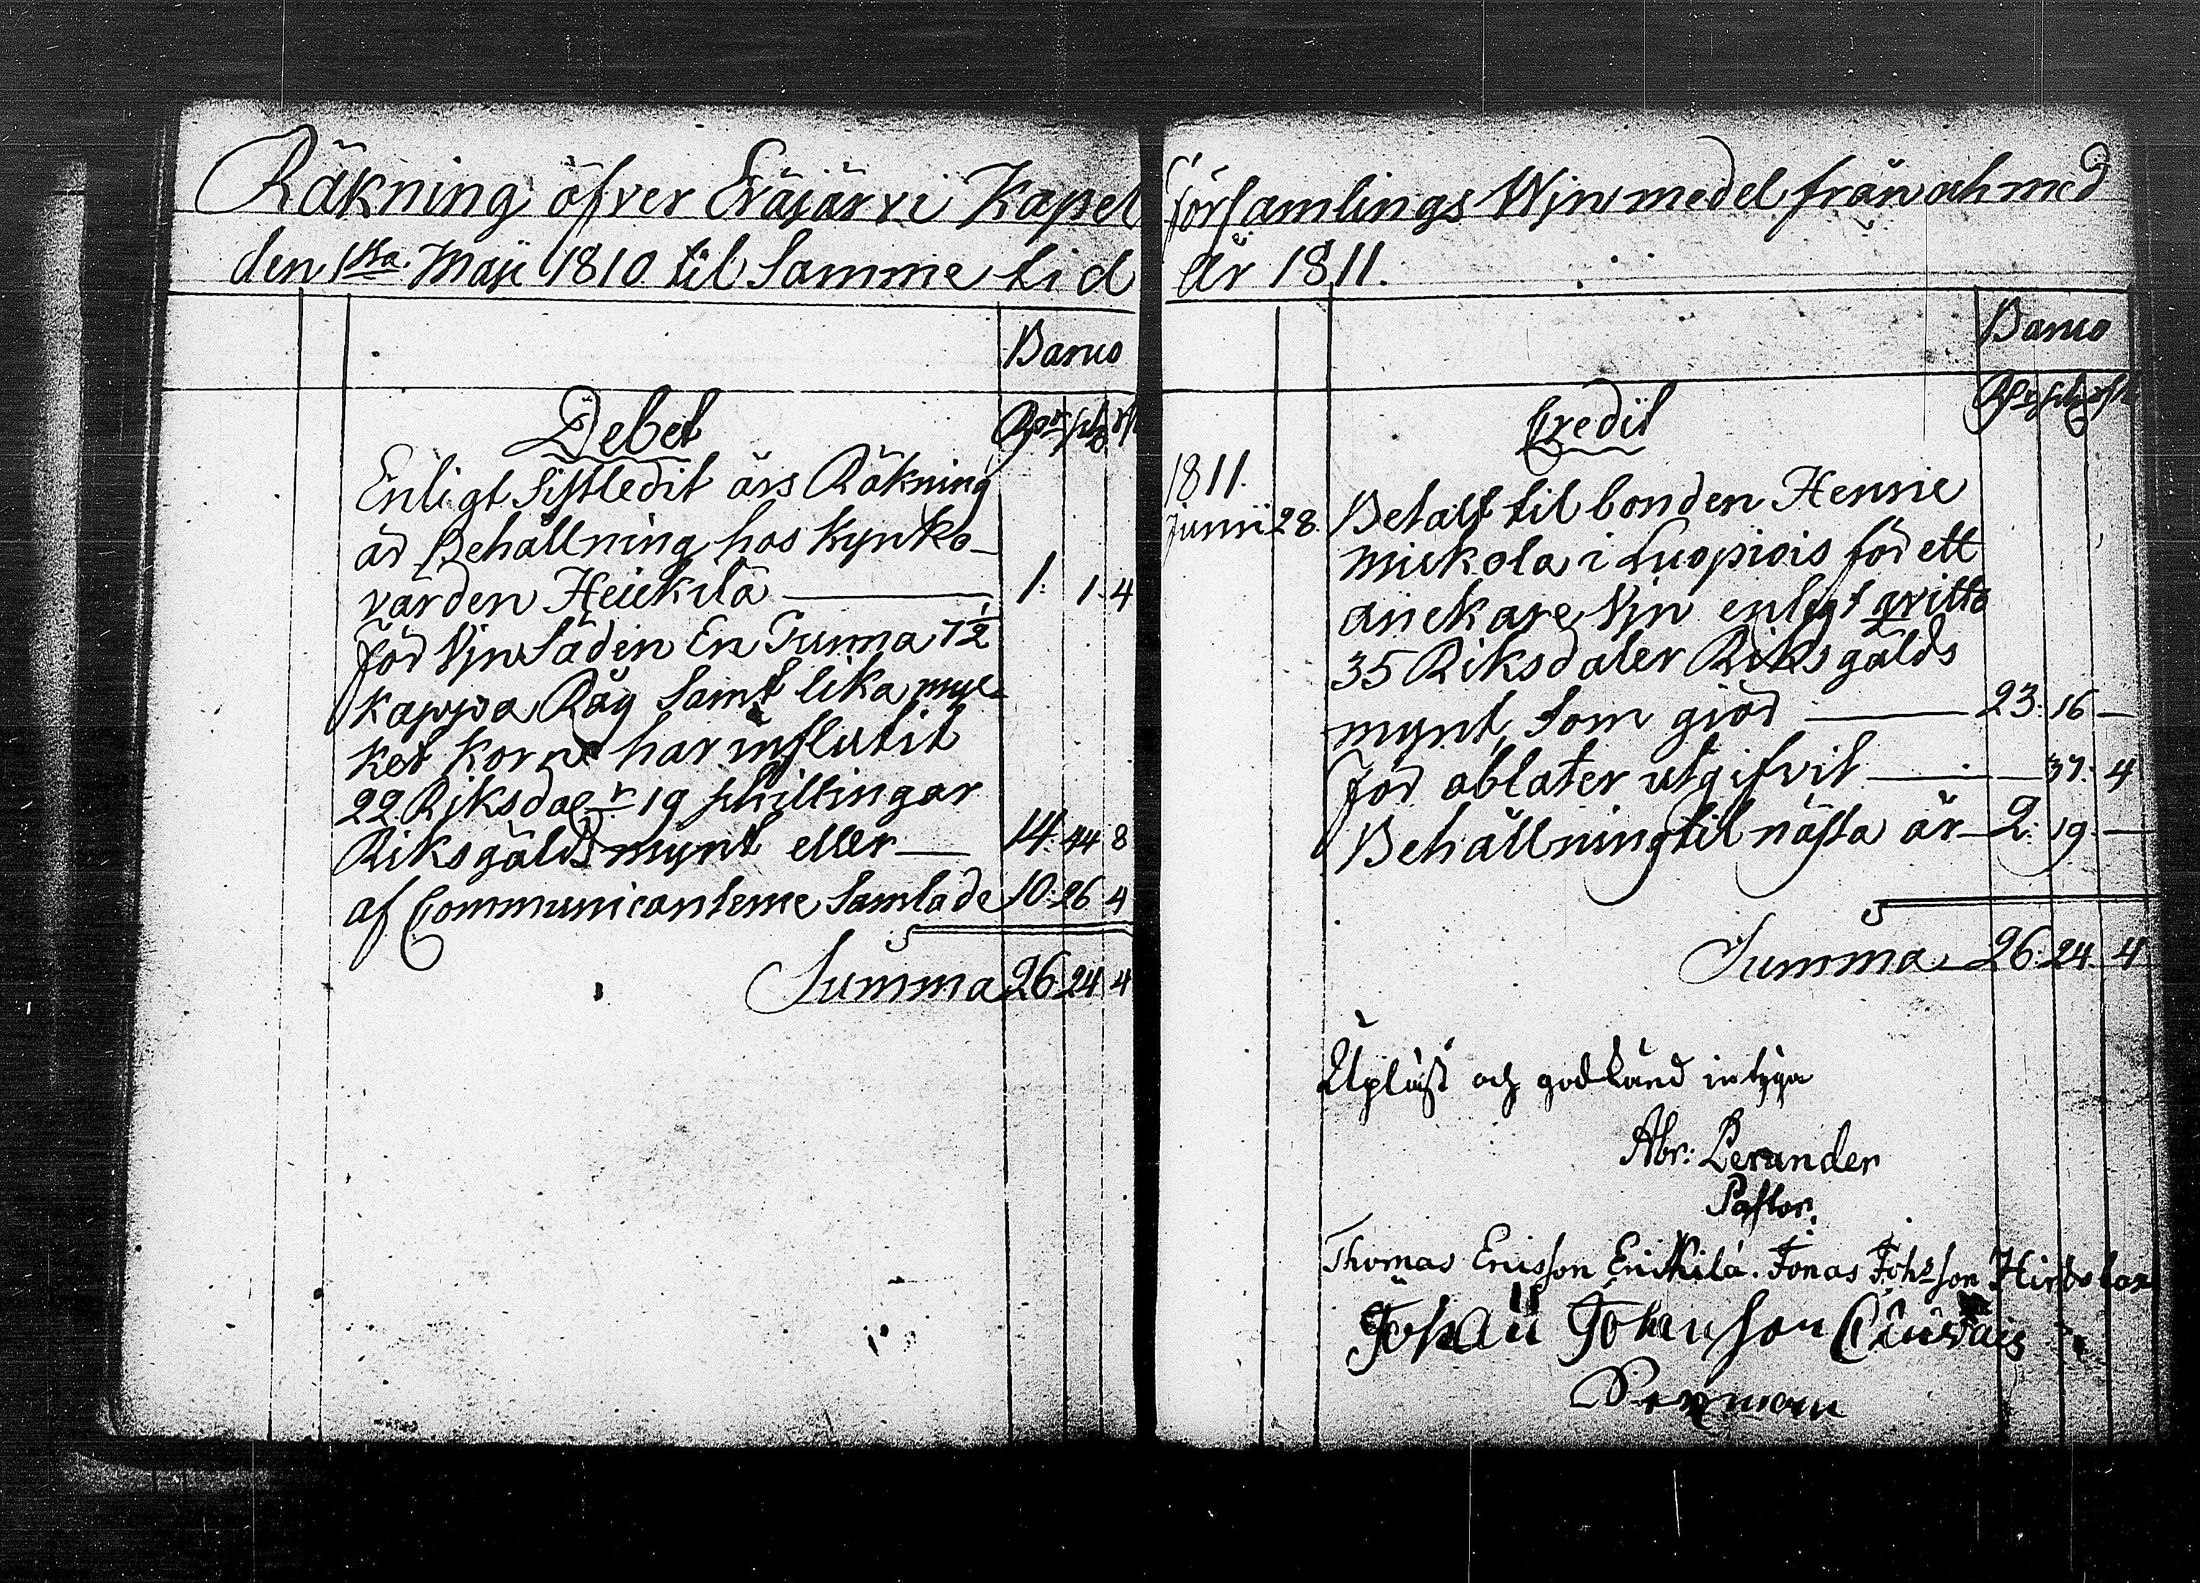 Räkning öfver Eräjärvi Kapel församlings Wjnmedel från och med
den 1sta Maji 1810 til samme tid år 1811.
Banco
Debet
Rdr sk rst
Enligt sistledit års Räkning
är Behållning hos Kyrko-
värden Heickilä — 1: 1. 4
för Vjnsäden En Tunna 7½
kappa Råg samt lika myc-
ket korn har influtit
22 Riksdalr 19 skillingar
Riksgälds mynt eller — 14: 44 8
af Communicanterne samlade 10: 26 4
Summa 26 24 4
Banco
Credit
Rdr sk rst
1811.
Junii 28. Betalt til bonden Henric
Mickola i Luopiois för ett
anckare Vjn enligt qvitto
35 Riksdaler Riksgälds
mynt, som giör — 23: 16 —
för oblater utgifvit — 37: 4
Behållning til nästa år — 2: 19 —
Summa 26: 24. 4
Upläst och godkänd intyga
Abr: Perander
Pastor.
Thomas Ericsson Erickilä. Jonas Johsson
Johan Johansson